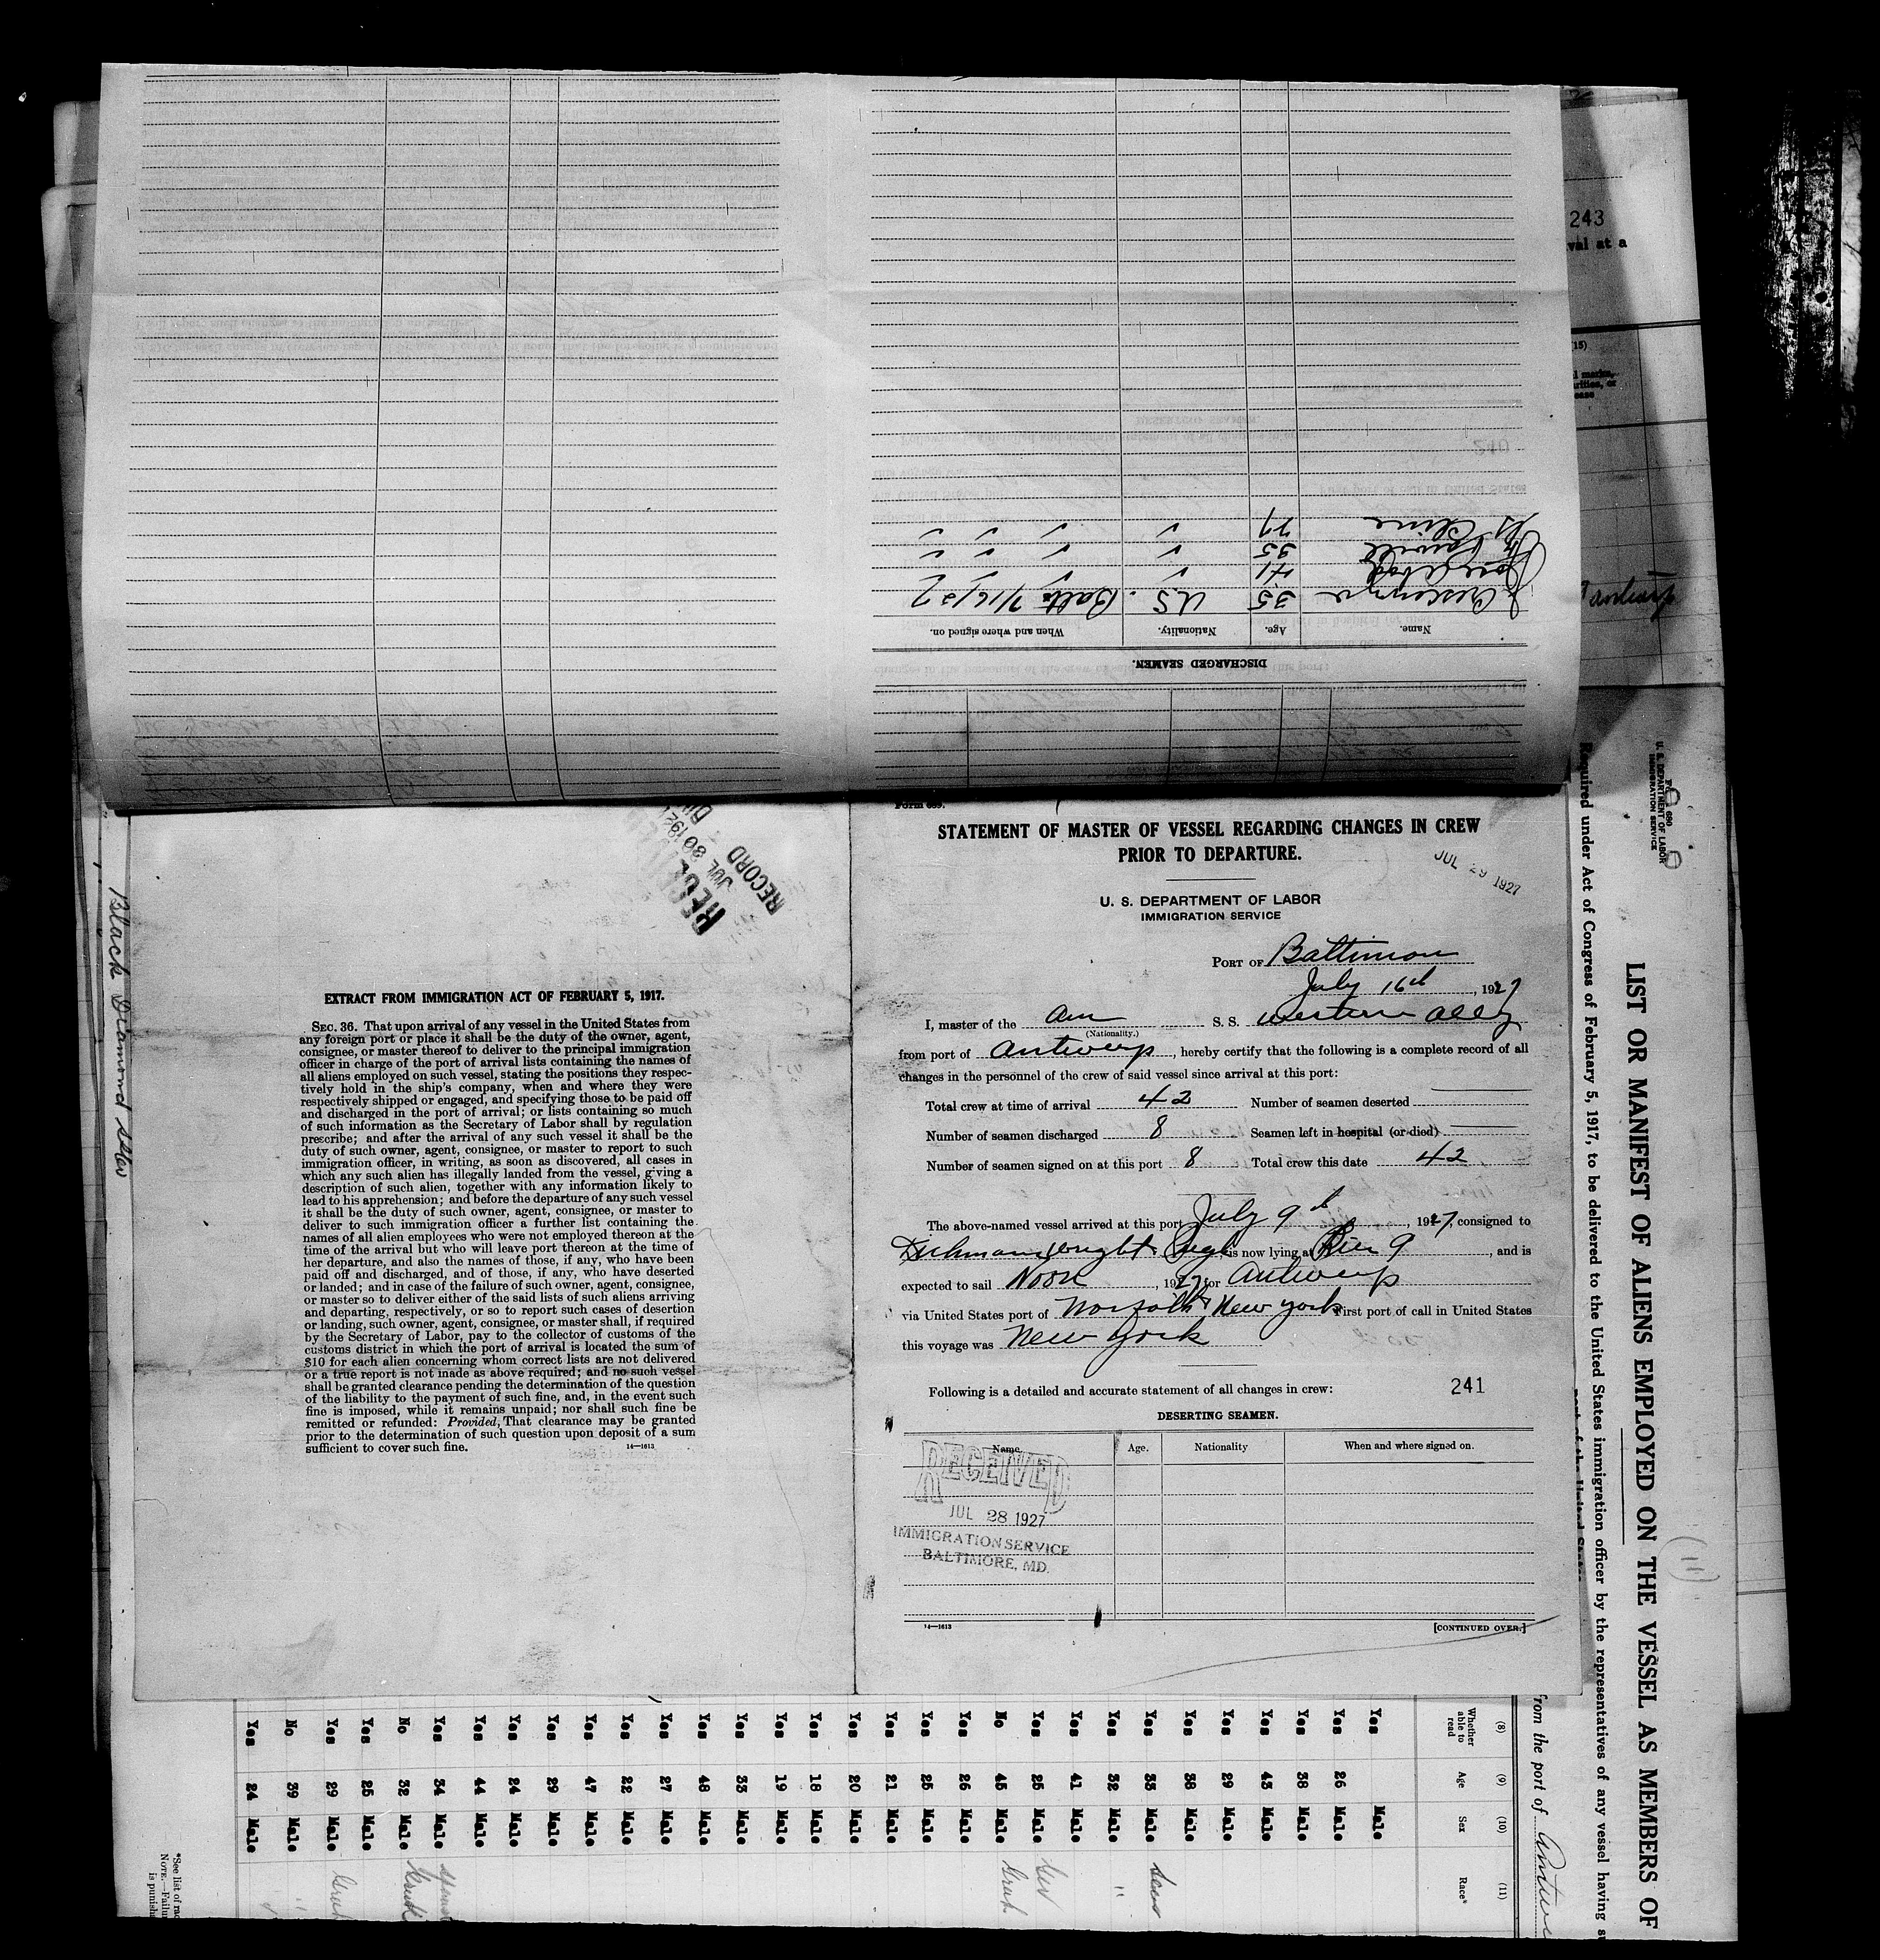 DISCHARGED SEAMEN.
Name. Age. Nationality. When and where signed on.
35 U.S. Balto 7/16/27
41
35
Form 689.
STATEMENT OF MASTER OF VESSEL REGARDING CHANGES IN CREW
PRIOR TO DEPARTURE.
JUL 29 1927
U. S. DEPARTMENT OF LABOR
IMMIGRATION SERVICE
PORT OF Baltimore
July 16th, 1927
I, master of the Am S. S. Western Ally
(Nationality.)
from port of Antwerp, hereby certify that the following is a complete record of all
changes in the personnel of the crew of said vessel since arrival at this port:
Total crew at time of arrival 42 Number of seamen deserted
Number of seamen discharged 8 Seamen left in hospital (or died)
Number of seamen signed on at this port 8 Total crew this date 42
The above-named vessel arrived at this port July 9th, 1927, consigned to
Dichmann Wright & Pugh is now lying at Pier 9, and is
expected to sail Noon, 1927, for Antwerp
via United States port of Norfolk & New York First port of call in United States
this voyage was New York
Following is a detailed and accurate statement of all changes in crew: 241
DESERTING SEAMEN.
Name. Age. Nationality When and where signed on.
RECEIVED
JUL 28 1927
IMMIGRATION SERVICE
BALTIMORE, MD.
14—1613 [CONTINUED OVER.]
JUL 30 1927
RECORD
EXTRACT FROM IMMIGRATION ACT OF FEBRUARY 5, 1917.
SEC. 36. That upon arrival of any vessel in the United States from
any foreign port or place it shall be the duty of the owner, agent,
consignee, or master thereof to deliver to the principal immigration
officer in charge of the port of arrival lists containing the names of
all aliens employed on such vessel, stating the positions they respec-
tively hold in the ship's company, when and where they were
respectively shipped or engaged, and specifying those to be paid off
and discharged in the port of arrival; or lists containing so much
of such information as the Secretary of Labor shall by regulation
prescribe; and after the arrival of any such vessel it shall be the
duty of such owner, agent, consignee, or master to report to such
immigration officer, in writing, as soon as discovered, all cases in
which any such alien has illegally landed from the vessel, giving a
description of such alien, together with any information likely to
lead to his apprehension; and before the departure of any such vessel
it shall be the duty of such owner, agent, consignee, or master to
deliver to such immigration officer a further list containing the
names of all alien employees who were not employed thereon at the
time of the arrival but who will leave port thereon at the time of
her departure, and also the names of those, if any, who have been
paid off and discharged, and of those, if any, who have deserted
or landed; and in case of the failure of such owner, agent, consignee,
or master so to deliver either of the said lists of such aliens arriving
and departing, respectively, or so to report such cases of desertion
or landing, such owner, agent, consignee, or master shall, if required
by the Secretary of Labor, pay to the collector of customs of the
customs district in which the port of arrival is located the sum of
$10 for each alien concerning whom correct lists are not delivered
or a true report is not made as above required; and no such vessel
shall be granted clearance pending the determination of the question
of the liability to the payment of such fine, and, in the event such
fine is imposed, while it remains unpaid; nor shall such fine be
remitted or refunded: Provided, That clearance may be granted
prior to the determination of such question upon deposit of a sum
sufficient to cover such fine. 14—1613
Black Diamond
243
val at a
(15)
U. S. DEPARTMENT OF LABOR
IMMIGRATION SERVICE
LIST OR MANIFEST OF ALIENS EMPLOYED ON THE VESSEL AS MEMBERS OF
Required under Act of Congress of February 5, 1917, to be delivered to the United States immigration officer by the representatives of any vessel having
(11)
from the port of
(8) (9) (10) (11)
Whether able to read Age Sex Race*
Yes Male
Yes 26 Male
Yes 38 Male
Yes 43 Male
Yes 29 Male
Yes 38 Male
Yes 33 Male
Yes 32 Male
Yes 41 Male
Yes 25 Male
No 45 Male
Yes 26 Male
Yes 25 Male
Yes 21 Male
Yes 20 Male
Yes 18 Male
Yes 19 Male
Yes 33 Male
Yes 48 Male
Yes 27 Male
Yes 22 Male
Yes 47 Male
Yes 29 Male
Yes 24 Male
Yes 44 Male
Yes 34 Male
No 32 Male
Yes 25 Male
Yes 29 Male
No 39 Male
Yes 24 Male
*See list of
NOTE.—
is